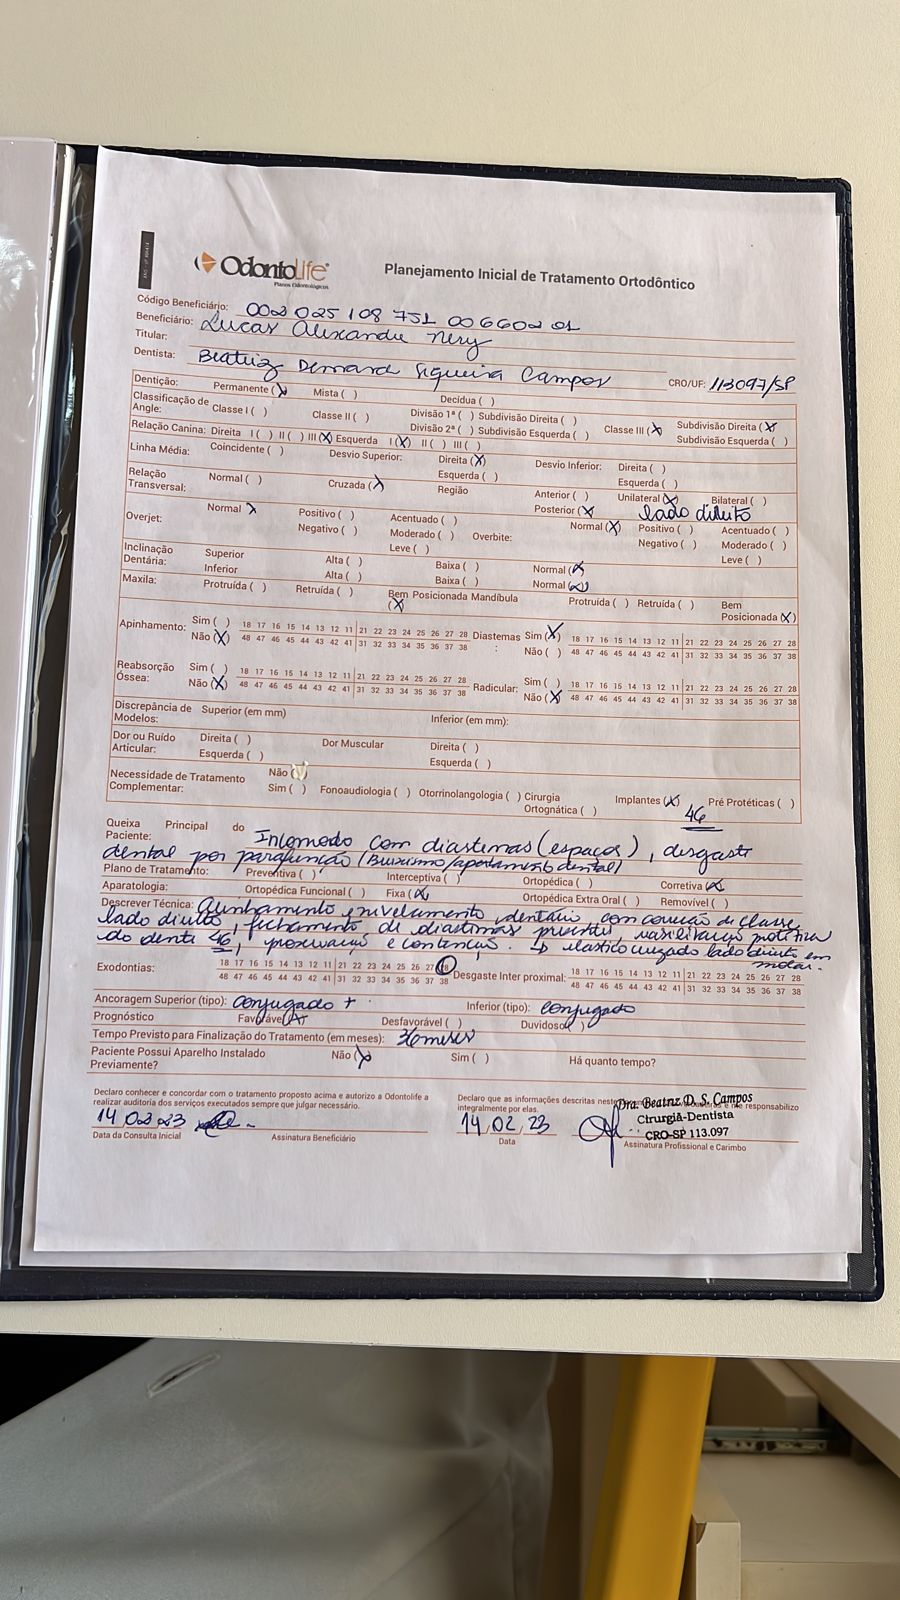 OdontoLife
Planos Odontológicos
Planejamento Inicial de Tratamento Ortodôntico
Código Beneficiário: 002 025 108 751 00 6602 01
Beneficiário: Lucas Alexandre Nery
Titular:
Dentista: Beatriz Siqueira Campos CRO/UF: 113097/SP
Dentição: Permanente (X) Mista ( ) Decídua ( )
Classificação de Angle: Classe I ( ) Classe II ( ) Divisão 1ª ( ) Subdivisão Direita ( ) Classe III (X) Subdivisão Direita (X)
Divisão 2ª ( ) Subdivisão Esquerda ( ) Subdivisão Esquerda ( )
Relação Canina: Direita I ( ) II ( ) III (X) Esquerda I (X) II ( ) III ( )
Linha Média: Coincidente ( ) Desvio Superior: Direita (X) Desvio Inferior: Direita ( )
Esquerda ( ) Esquerda ( )
Relação Transversal: Normal ( ) Cruzada (X) Região Anterior ( ) Unilateral (X) Bilateral ( )
Posterior (X) lado direito
Overjet: Normal X Positivo ( ) Acentuado ( ) Overbite: Normal (X) Positivo ( ) Acentuado ( )
Negativo ( ) Moderado ( ) Negativo ( ) Moderado ( )
Leve ( ) Leve ( )
Inclinação Dentária: Superior Alta ( ) Baixa ( ) Normal (X)
Inferior Alta ( ) Baixa ( ) Normal (X)
Maxila: Protruída ( ) Retruída ( ) Bem Posicionada (X) Mandíbula Protruída ( ) Retruída ( ) Bem Posicionada (X)
Apinhamento: Sim ( ) 18 17 16 15 14 13 12 11 21 22 23 24 25 26 27 28 Diastemas: Sim (X) 18 17 16 15 14 13 12 11 21 22 23 24 25 26 27 28
Não (X) 48 47 46 45 44 43 42 41 31 32 33 34 35 36 37 38 Não ( ) 48 47 46 45 44 43 42 41 31 32 33 34 35 36 37 38
Reabsorção Óssea: Sim ( ) 18 17 16 15 14 13 12 11 21 22 23 24 25 26 27 28 Radicular: Sim ( ) 18 17 16 15 14 13 12 11 21 22 23 24 25 26 27 28
Não (X) 48 47 46 45 44 43 42 41 31 32 33 34 35 36 37 38 Não (X) 48 47 46 45 44 43 42 41 31 32 33 34 35 36 37 38
Discrepância de Modelos: Superior (em mm) Inferior (em mm):
Dor ou Ruído Articular: Direita ( ) Dor Muscular Direita ( )
Esquerda ( ) Esquerda ( )
Necessidade de Tratamento Complementar: Não ( )
Sim ( ) Fonoaudiologia ( ) Otorrinolangologia ( ) Cirurgia Ortognática ( ) Implantes (X) Pré Protéticas ( )
46
Queixa Principal do Paciente: Incomodo com diastemas (espaços), desgaste
dental por parafunção (Bruxismo/apertamento dental)
Plano de Tratamento: Preventiva ( ) Interceptiva ( ) Ortopédica ( ) Corretiva (X)
Aparatologia: Ortopédica Funcional ( ) Fixa (X) Ortopédica Extra Oral ( ) Removível ( )
Descrever Técnica: Alinhamento, nivelamento dentário, com correção de classe
lado direito, fechamento de diastemas presentes, reabilitação protética
do dente 46, e contenção. → elastico cruzado lado direito em
molar.
Exodontias: 18 17 16 15 14 13 12 11 21 22 23 24 25 26 27 28 Desgaste Inter proximal: 18 17 16 15 14 13 12 11 21 22 23 24 25 26 27 28
48 47 46 45 44 43 42 41 31 32 33 34 35 36 37 38 48 47 46 45 44 43 42 41 31 32 33 34 35 36 37 38
Ancoragem Superior (tipo): conjugado + Inferior (tipo): conjugado
Prognóstico Favorável (X) Desfavorável ( ) Duvidoso ( )
Tempo Previsto para Finalização do Tratamento (em meses): 36 meses
Paciente Possui Aparelho Instalado Previamente? Não (X) Sim ( ) Há quanto tempo?
Declaro conhecer e concordar com o tratamento proposto acima e autorizo a Odontolife a
realizar auditoria dos serviços executados sempre que julgar necessário.
14 02 23
Data da Consulta Inicial Assinatura Beneficiário
Declaro que as informações descritas me responsabilizo
integralmente por elas.
14 02 23
Data
Dra. Beatriz D. S. Campos
Cirurgiã-Dentista
CRO-SP 113.097
Assinatura Profissional e Carimbo